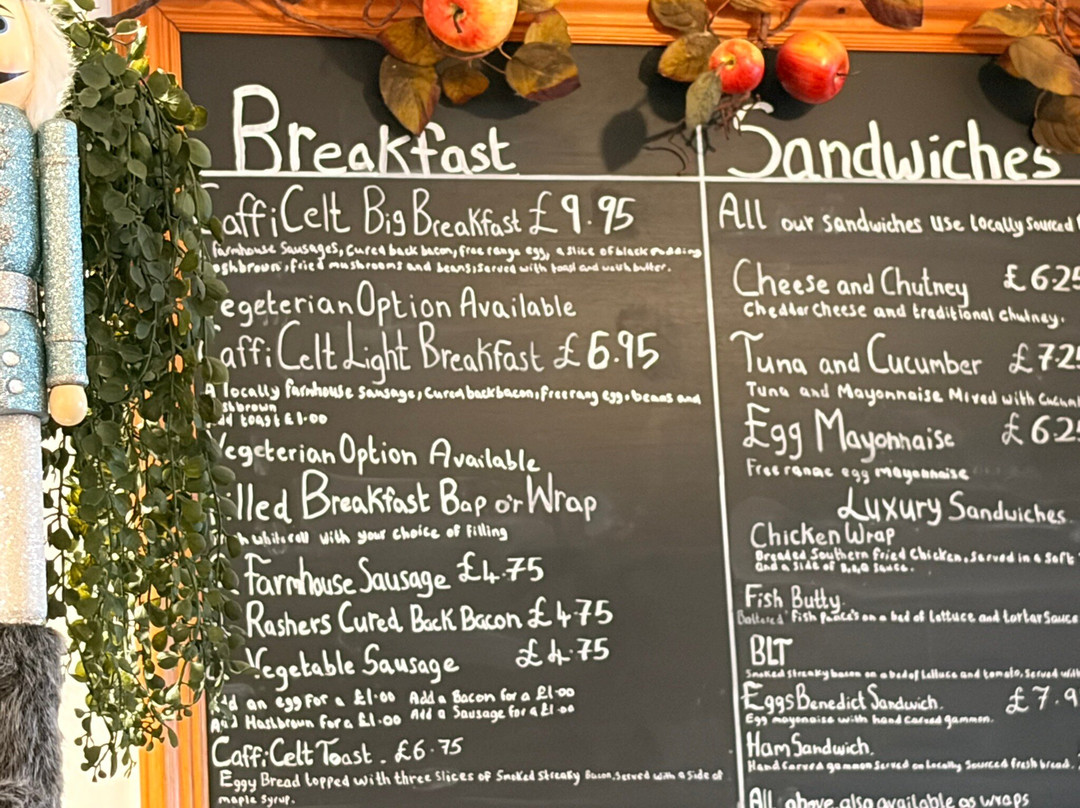 Breakfast
affi Celt Big Breakfast £9.95
farmhouse Sausages, Cured back bacon, free range egg, a slice of black pudding
ashbrown, fried mushrooms and beans, served with toast and welsh butter.
egeterian Option Available
affi Celt Light Breakfast £6.95
A locally farmhouse Sausage, Cured back bacon, free rang egg, beans and
shbrown
dd toast £1.00
Vegeterian Option Available
illed Breakfast Bap or Wrap
h white roll with your choice of filling
Farmhouse Sausage £4.75
Rashers Cured Back Bacon £4.75
Vegetable Sausage £4.75
Add an egg for a £1.00 Add a Bacon for a £1.00
Add Hashbrown for a £1.00 Add a Sausage for a £1.00
Caffi Celt Toast. £6.75
Eggy Bread topped with three Slices of Smoked Streaky Bacon, Served with a Side of
maple syrup.
Sandwiches
All our sandwiches use locally sourced
Cheese and Chutney £6.25
Cheddar cheese and traditional chutney.
Tuna and Cucumber £7.25
Tuna and Mayonnaise Mixed with
Egg Mayonnaise £6.25
Free range egg mayonnaise
Luxury Sandwiches
Chicken Wrap
Breaded Southern fried Chicken, Served in a Soft
and a side of B.B.Q Sauce.
Fish Butty
Battered Fish on a bed of lettuce and tartar Sauce
BLT
Smoked streaky bacon on a bed of lettuce and tomato, Served with
Eggs Benedict Sandwich. £7.9
Egg mayonaise with hand carved gammon.
Ham Sandwich.
Hand Carved gammon Served on locally Sourced fresh bread.
All above also available as wraps